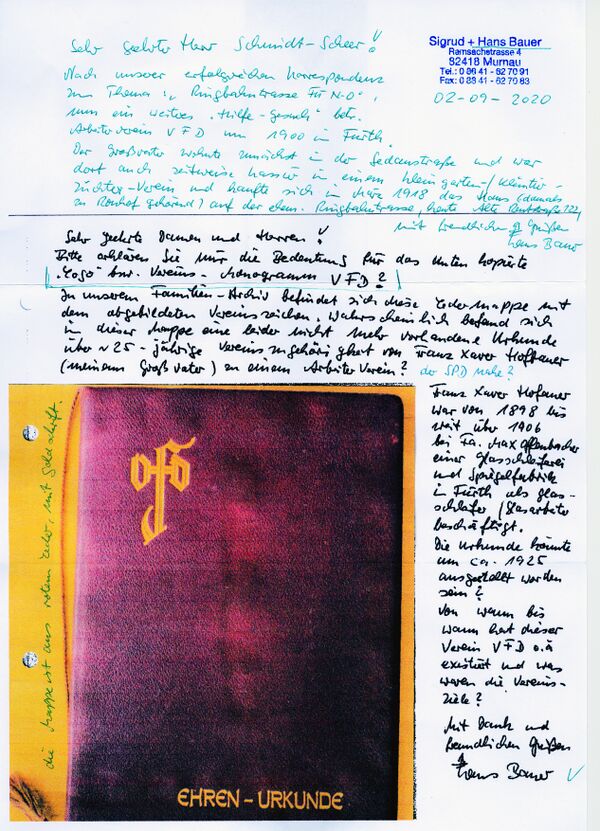 Sehr geehrter Herr Schmidt-Scheer!
Sigrud + Hans Bauer
Ramsachstrasse 4
82418 Murnau
Tel.: 0 88 41 - 62 70 91
Fax: 0 88 41 - 62 70 83
02-09-2020
Nach unserer erfolgreichen Korrespondenz
zum Thema "Ringbahntrasse Fü N-O",
nun ein weiteres "Hilfe-Gesuch" betr.
Arbeiterverein VFD um 1900 in Fürth.
Der Großvater wohnte zunächst in der Sedanstraße und war
dort auch zeitweise Kassier in einem Kleingarten-/Kleintier-
züchter-Verein und kaufte sich in März 1918 das Haus (damals
zu Ronhof gehörend) auf der ehem. Ringbahntrasse, heute Alte
mit freundlichen Grüßen
Hans Bauer
Sehr geehrte Damen und Herren!
Bitte erklären Sie mir die Bedeutung für das unten kopierte
"Logo" bzw. Vereins-Monogramm VFD?
In unserem Familien-Archiv befindet sich diese Ledermappe mit
dem abgebildeten Vereinszeichen. Wahrscheinlich befand sich
in dieser Mappe eine leider nicht mehr vorhandene Urkunde
über ~25-jährige Vereinszugehörigkeit von Franz Xaver Hofbauer
(meinem Großvater) zu einem Arbeiter Verein? der SPD nahe?
die Mappe ist aus rotem Leder, mit Goldschrift.
EHREN-URKUNDE
Franz Xaver Hofbauer
war von 1898 bis
weit über 1906
bei Fa. Max Offenbacher
einer Glasschleiferei
und Spiegelfabrik
in Fürth als Glas-
schleifer / Glasarbeiter
beschäftigt.
Die Urkunde könnte
um ca. 1925
ausgestellt worden
sein?
Von wann bis
wann hat dieser
Verein VFD o.ä
existiert und was
waren die Vereins-
ziele?
Mit Dank und
freundlichen Grüßen
Hans Bauer